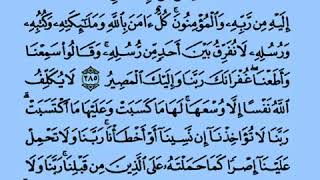 إِلَيْهِ مِن رَّبِّهِۦ وَٱلْمُؤْمِنُونَ ۚ كُلٌّ ءَامَنَ بِٱللَّهِ وَمَلَـٰٓئِكَتِهِۦ وَكُتُبِهِۦ
وَرُسُلِهِۦ لَا نُفَرِّقُ بَيْنَ أَحَدٍ مِّن رُّسُلِهِۦ ۚ وَقَالُوا۟ سَمِعْنَا
وَأَطَعْنَا ۖ غُفْرَانَكَ رَبَّنَا وَإِلَيْكَ ٱلْمَصِيرُ ٢٨٥ لَا يُكَلِّفُ
ٱللَّهُ نَفْسًا إِلَّا وُسْعَهَا ۚ لَهَا مَا كَسَبَتْ وَعَلَيْهَا مَا ٱكْتَسَبَتْ ۗ
رَبَّنَا لَا تُؤَاخِذْنَآ إِن نَّسِينَآ أَوْ أَخْطَأْنَا ۚ رَبَّنَا وَلَا تَحْمِلْ
عَلَيْنَآ إِصْرًا كَمَا حَمَلْتَهُۥ عَلَى ٱلَّذِينَ مِن قَبْلِنَا ۚ رَبَّنَا وَلَا